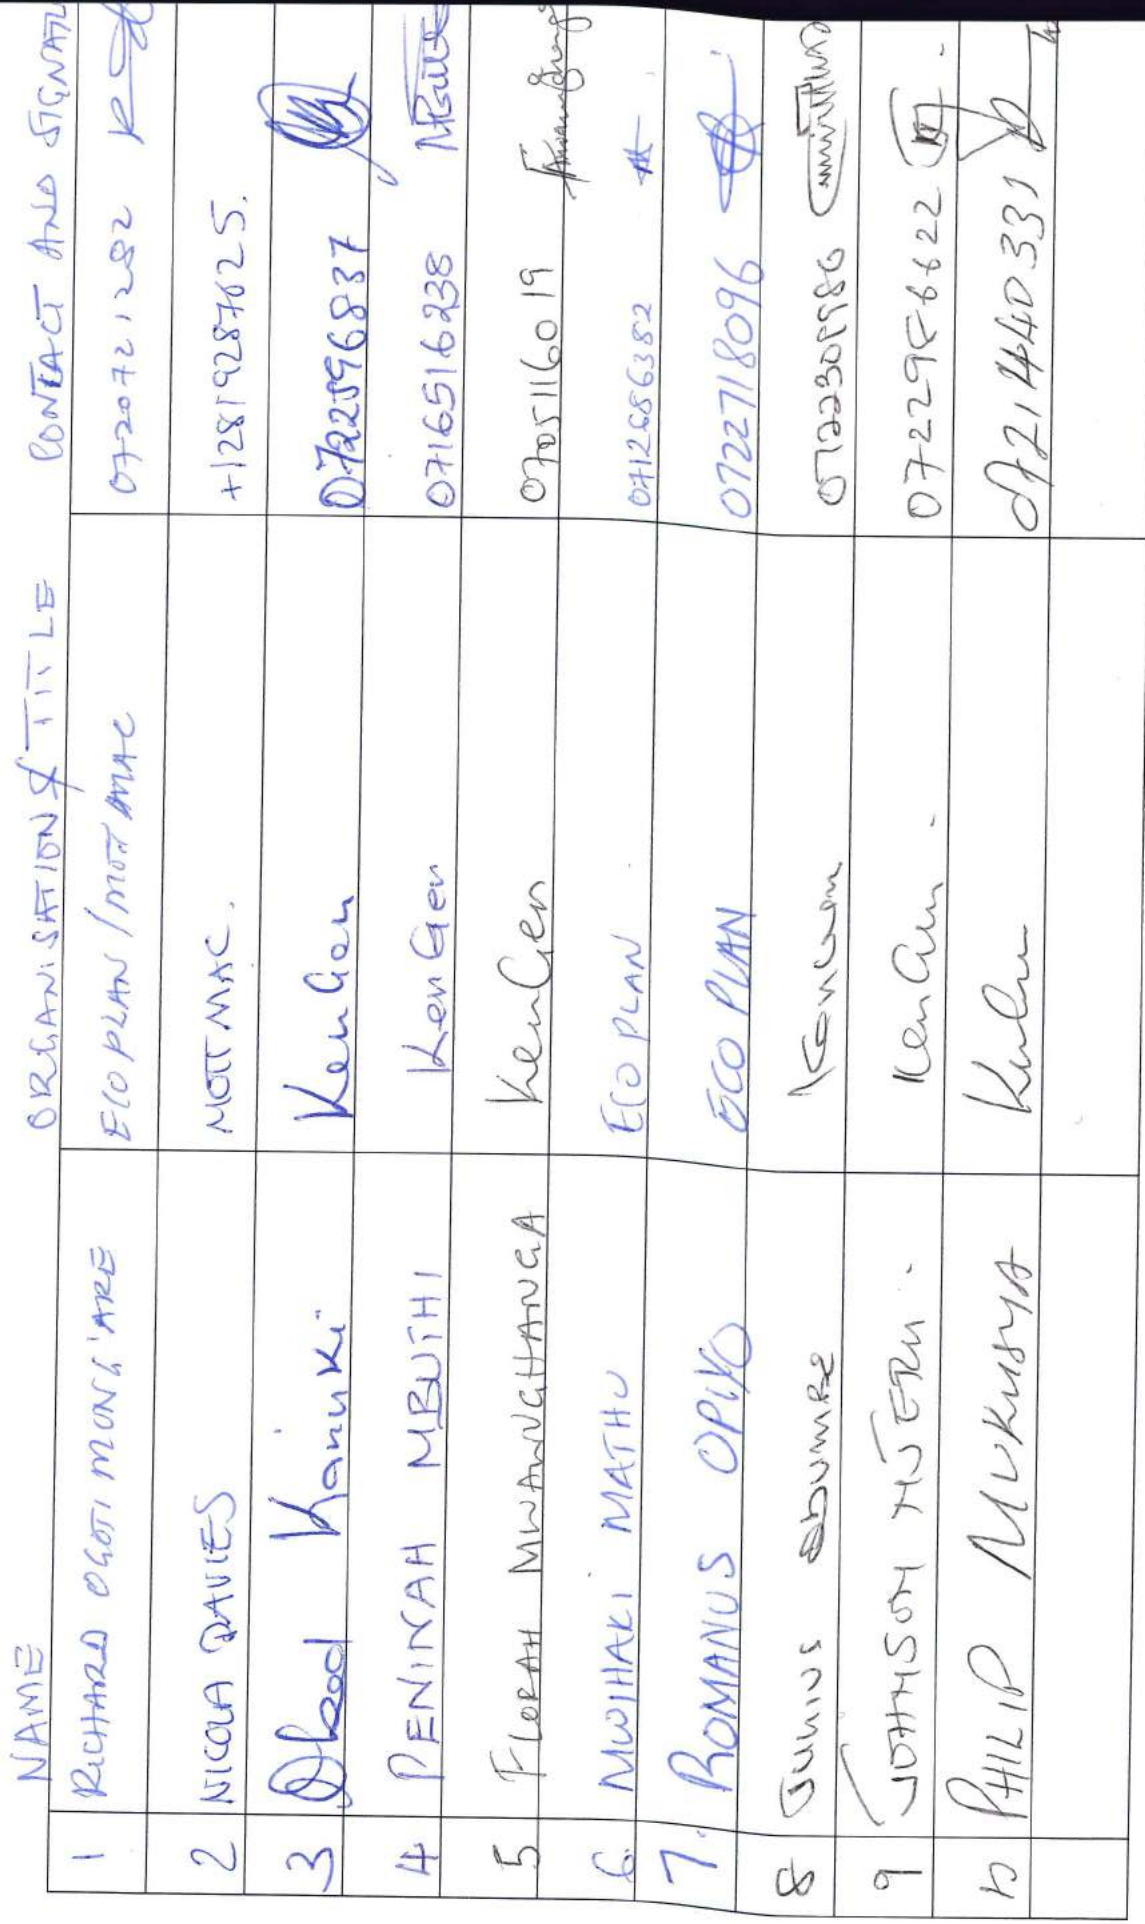 NAME ORGANISATION & TITLE CONTACT AND SIGNATU
1 RICHARD OGOTI MONG'ARE ECOPLAN/MOTT MAC 0720721282
2 NICOLA DAVIES MOTT MAC. +12819287625.
3 Kariuki KenGen 0722596837
4 PENINAH MBUTHI KenGen 0716516238
5 FLORAH MWANGHANGA KenGen 0705116019
6. MWIHAKI MATHU ECOPLAN 0712686382
7. ROMANUS OPIYO ECO PLAN 0722718096
8 JULIUS
9 JOHNSON NJERU. KenGen. 0722956622
10 PHILIP MUKUSYA 0721440331